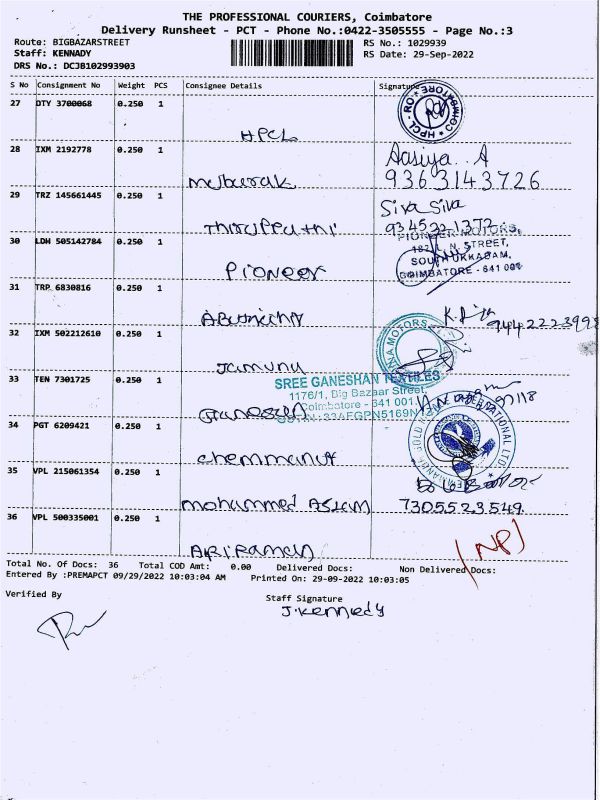 THE PROFESSIONAL COURIERS, Coimbatore
Delivery Runsheet - PCT - Phone No.:0422-3505555 - Page No.:3
Route: BIGBAZARSTREET RS No.: 1029939
Staff: KENNADY RS Date: 29-Sep-2022
DRS No.: DCJB102993903
S No Consignment No Weight PCS Consignee Details Signature
27 DTY 3700068 0.250 1
HPCL
HPCL - RO COIMBATORE
28 IXM 2192778 0.250 1
Mubarak
Aasiya. A
9363143726
29 TRZ 145661445 0.250 1
Thiruppathi
Siva Siva
30 LDH 505142784 0.250 1
Pioneer
PIONEER MOTORS,
N. STREET,
SOUTH UKKADAM,
COIMBATORE - 641 001
31 TRP 6830816 0.250 1
K.
9442223998
32 IXM 502212610 0.250 1
Jamuna
MOTORS
33 TEN 7301725 0.250 1
Ganesan
SREE GANESHAN TEXTILES
1176/1, Big Bazaar Street
Coimbatore - 641 001.
34 PGT 6209421 0.250 1
Chemmanur
INTERNATIONAL LTD.
35 VPL 215061354 0.250 1
Mohammed Aslam
7305523549
36 VPL 500335001 0.250 1
Ariraman
(NP)
Total No. Of Docs: 36 Total COD Amt: 0.00 Delivered Docs: Non Delivered Docs:
Entered By :PREMAPCT 09/29/2022 10:03:04 AM Printed On: 29-09-2022 10:03:05
Verified By Staff Signature
J.Kennedy